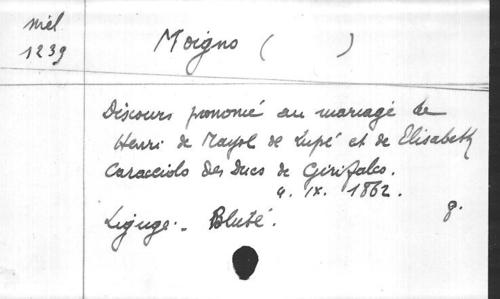 Mél
1239
Moigno ( )
Discours prononcé au mariage de
Henri de Mayol de Lupé et de Elisabeth
Caracciolo des Ducs de Girifalco.
9. IX. 1862.
8.
Ligugé. - Bluté.